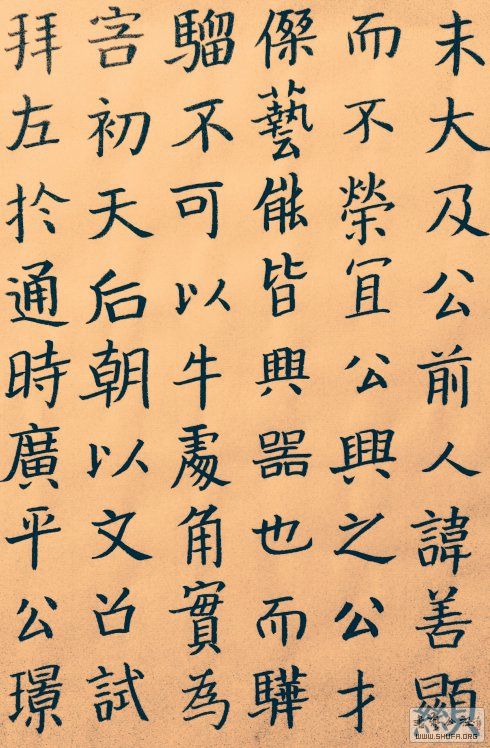 未大及公前人諱善顯
而不榮宜公興之公才
傑藝能皆興器也而驊
騮不可以牛處角實為
害初天后朝以文召試
拜左於通時廣平公璟
WWW.SHUFA.ORG